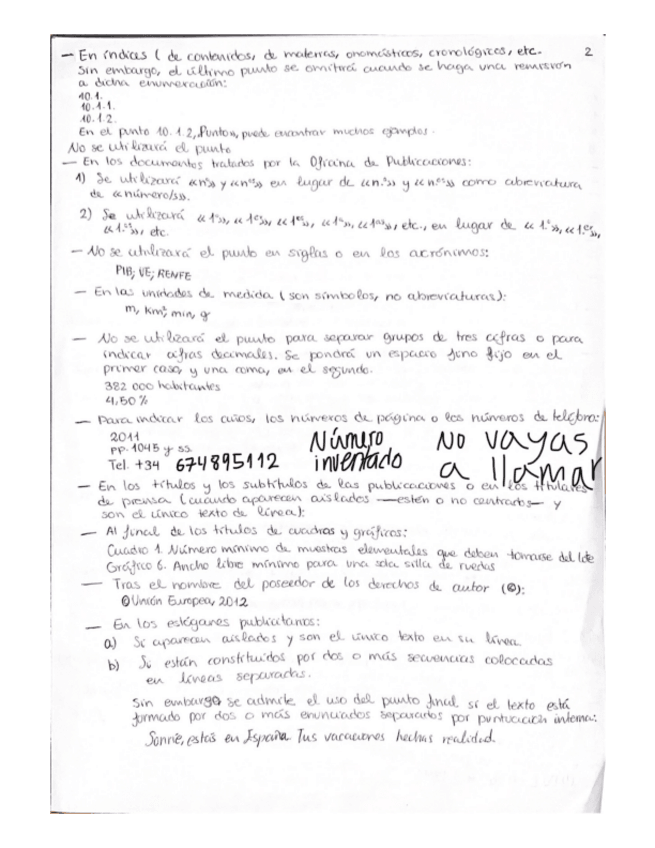 — En índices (de contenidos, de materias, onomásticos, cronológicos, etc. 2
Sin embargo, el último punto se omitirá cuando se haga una remisión
a dicha enumeración:
10.1.
10.1.1.
10.1.2.
En el punto 10.1.2, «Punto», puede encontrar muchos ejemplos.
No se utilizará el punto
— En los documentos tratados por la Oficina de Publicaciones:
1) Se utilizará «nº» y «nos» en lugar de «n.º» y «n.os» como abreviatura
de «número/s».
2) Se utilizará «1º», «1er», «1os», «1a», «1as», etc., en lugar de «1.º», «1.er»,
«1.os», etc.
— No se utilizará el punto en siglas o en los acrónimos:
PIB; UE; RENFE
— En las unidades de medida (son símbolos, no abreviaturas):
m, km², min, g
— No se utilizará el punto para separar grupos de tres cifras o para
indicar cifras decimales. Se pondrá un espacio fino fijo en el
primer caso, y una coma, en el segundo.
382 000 habitantes
4,50 %
— Para indicar los años, los números de página o los números de teléfono:
2011
pp. 1045 y ss.
Tel. +34 674895112 Número inventado No vayas a llamar
— En los títulos y los subtítulos de las publicaciones o en los titulares
de prensa (cuando aparecen aislados —estén o no centrados— y
son el único texto de línea):
— Al final de los títulos de cuadros y gráficos:
Cuadro 1. Número mínimo de muestras elementales que deben tomarse del lote
Gráfico 6. Ancho libre mínimo para una sola silla de ruedas
— Tras el nombre del poseedor de los derechos de autor (©):
© Unión Europea, 2012
— En los eslóganes publicitarios:
a) Si aparecen aislados y son el único texto en su línea.
b) Si están constituidos por dos o más secuencias colocadas
en líneas separadas.
Sin embargo se admite el uso del punto final si el texto está
formado por dos o más enunciados separados por puntuación interna:
Sonríe, estás en España. Tus vacaciones hechas realidad.